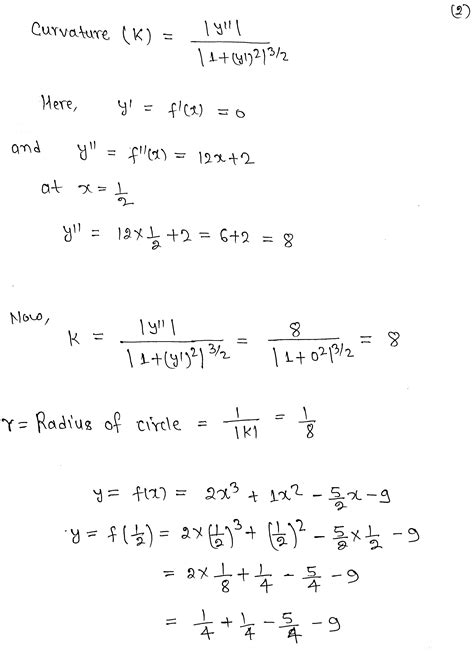 (2)
Curvature (K) = |y''| / |1+(y')²|^3/2
Here, y' = f'(x) = 0
and y'' = f''(x) = 12x+2
at x = 1/2
y'' = 12×1/2 +2 = 6+2 = 8
Now,
K = |y''| / |1+(y')²|^3/2 = 8 / |1+0²|^3/2 = 8
r = Radius of circle = 1/|K| = 1/8
y = f(x) = 2x³ + 1x² - 5/2 x - 9
y = f(1/2) = 2×(1/2)³ + (1/2)² - 5/2 × 1/2 - 9
= 2×1/8 + 1/4 - 5/4 - 9
= 1/4 + 1/4 - 5/4 - 9